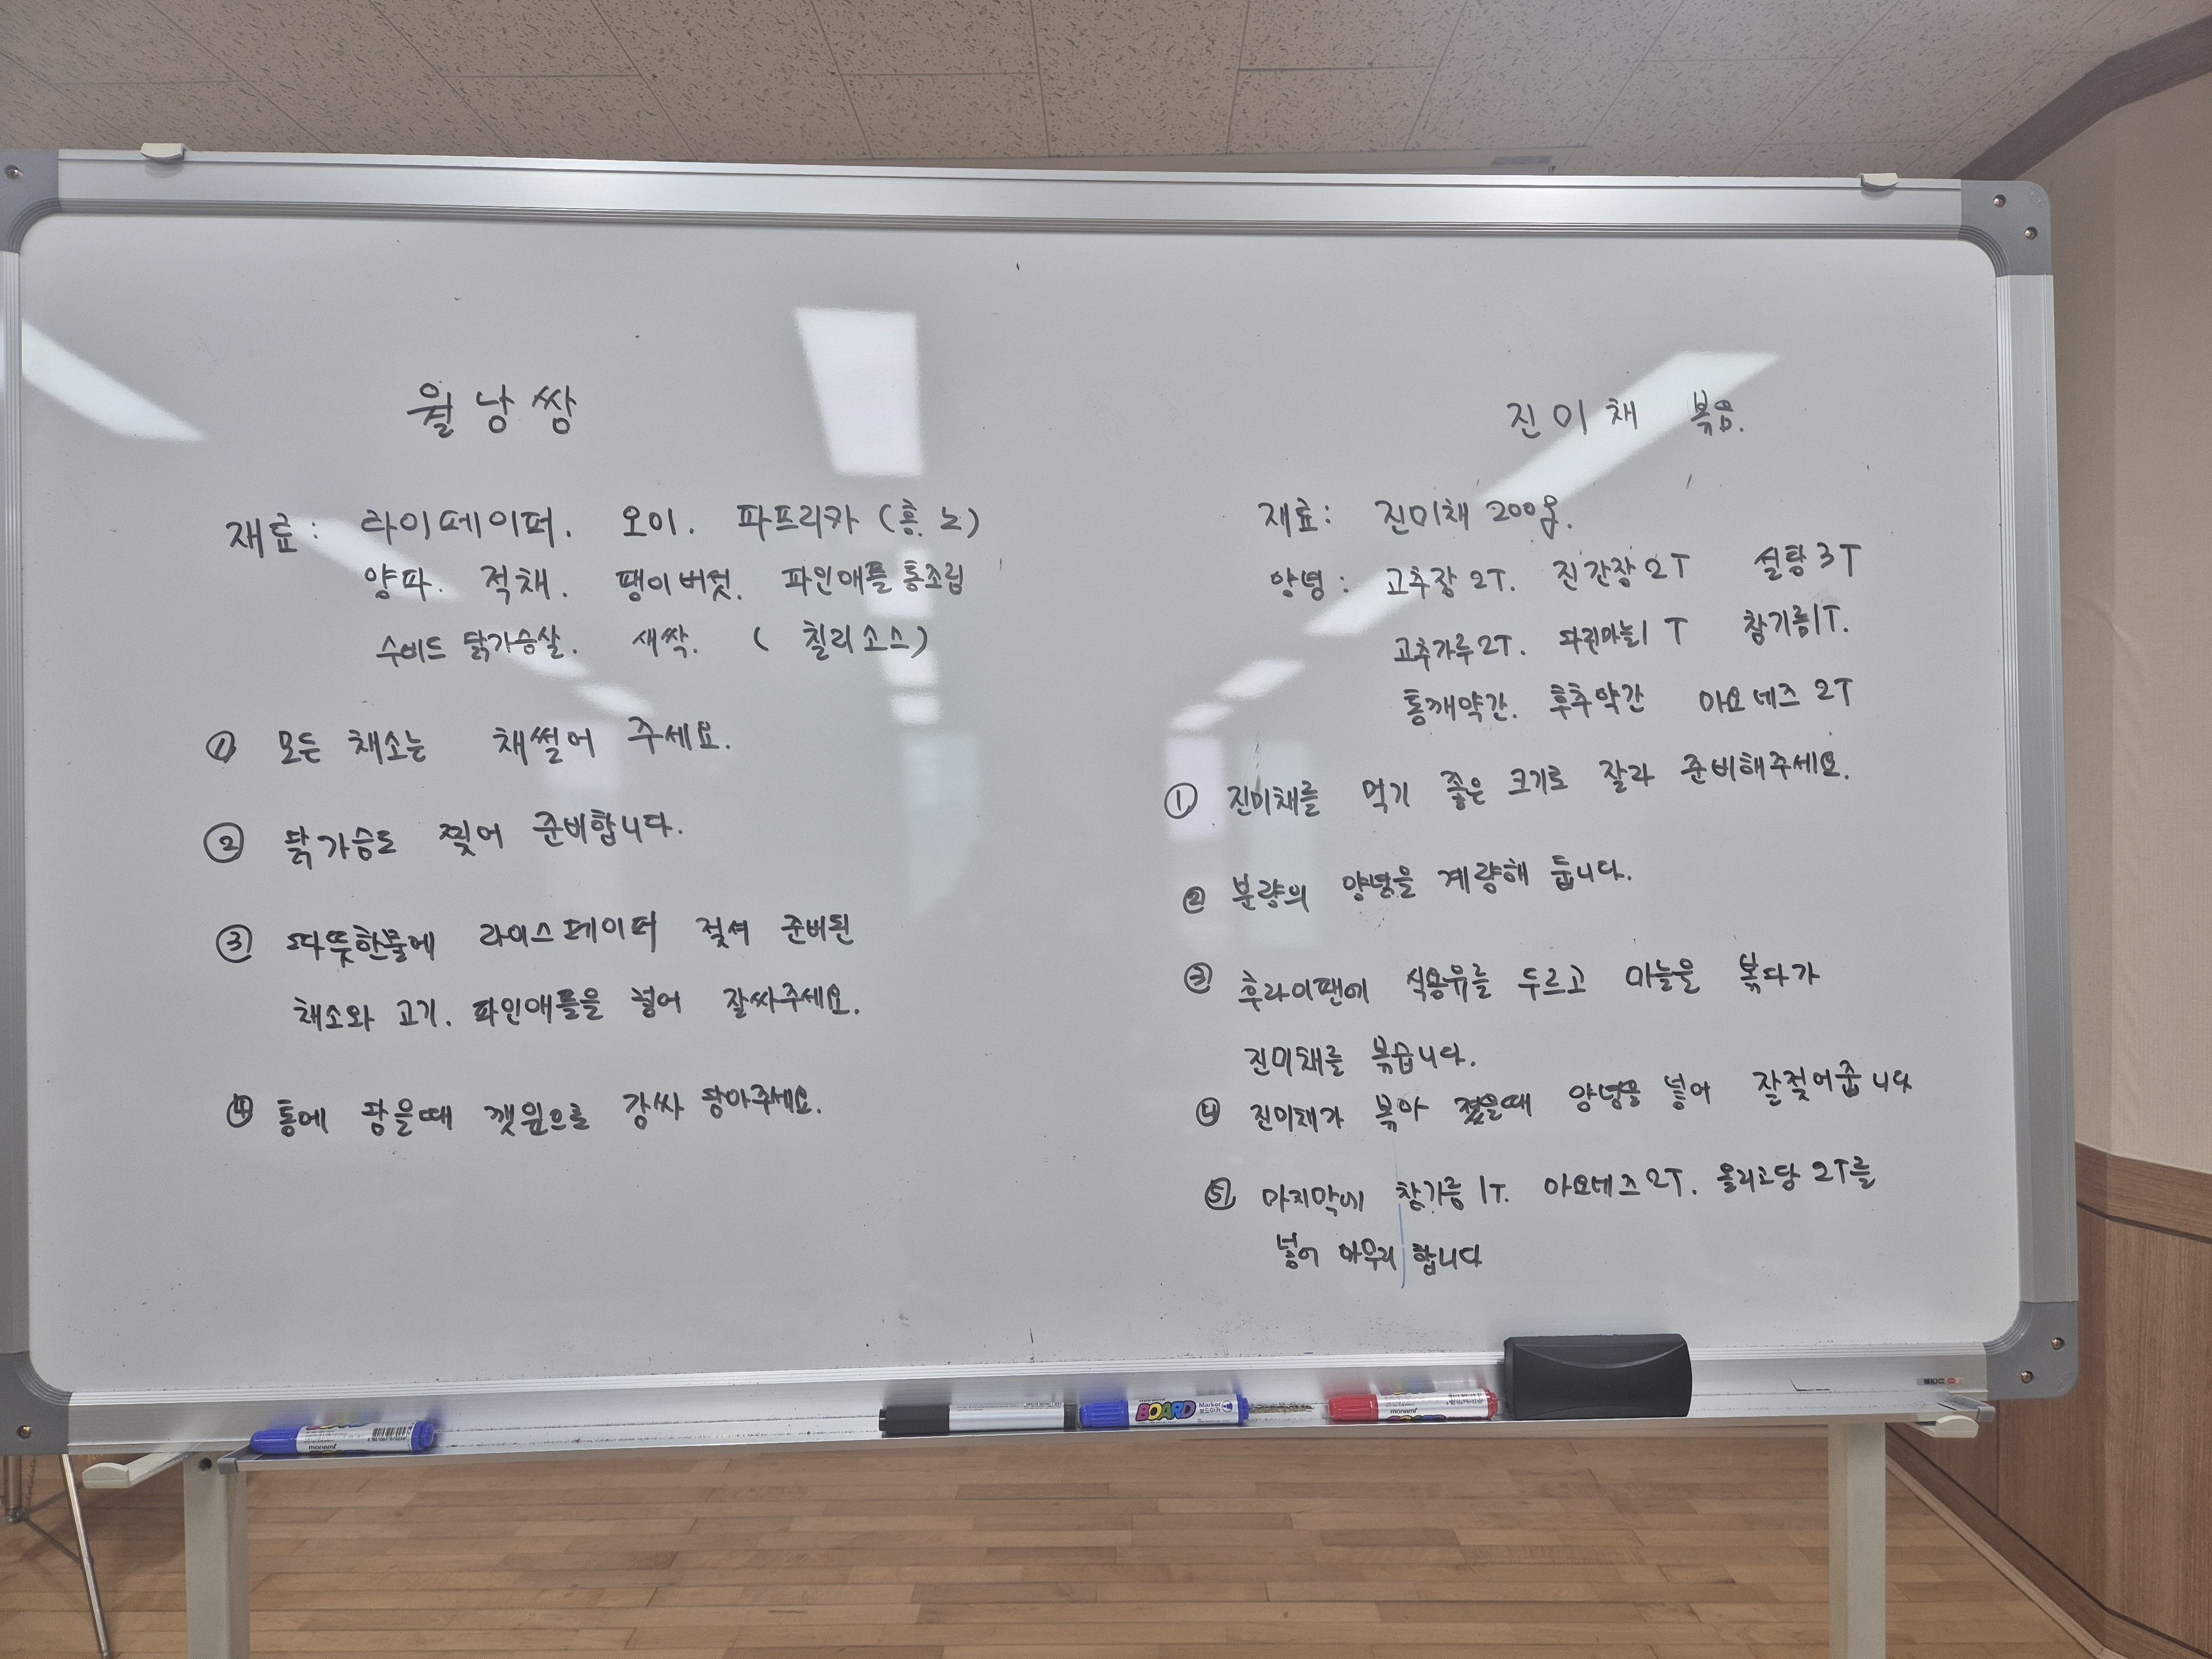 월남쌈
재료: 라이페이퍼. 오이. 파프리카 (홍. 노)
양파. 적채. 팽이버섯. 파인애플 통조림
수비드 닭가슴살. 새싹. ( 칠리소스)
① 모든 채소는 채썰어 주세요.
② 닭가슴도 찢어 준비합니다.
③ 따뜻한물에 라이스페이퍼 젖셔 준비된
채소와 고기. 파인애플을 넣어 잘싸주세요.
④ 통에 담을때 깻잎으로 감싸 담아주세요.
진미채 볶음.
재료: 진미채 200g.
양념: 고추장 2T. 진간장 2T 설탕 3T
고추가루 2T. 다진마늘 1T 참기름 1T.
통깨약간. 후추약간 마요네즈 2T
① 진미채를 먹기 좋은 크기로 잘라 준비해주세요.
② 분량의 양념을 계량해 둡니다.
③ 후라이팬에 식용유를 두르고 마늘을 볶다가
진미채를 볶습니다.
④ 진미채가 볶아 졌을때 양념을 넣어 잘젖어줍니다
⑤ 마지막에 참기름 1T. 마요네즈 2T. 올리고당 2T를
넣어 마무리 합니다
BOARD Marker
보드마카
monami
monami